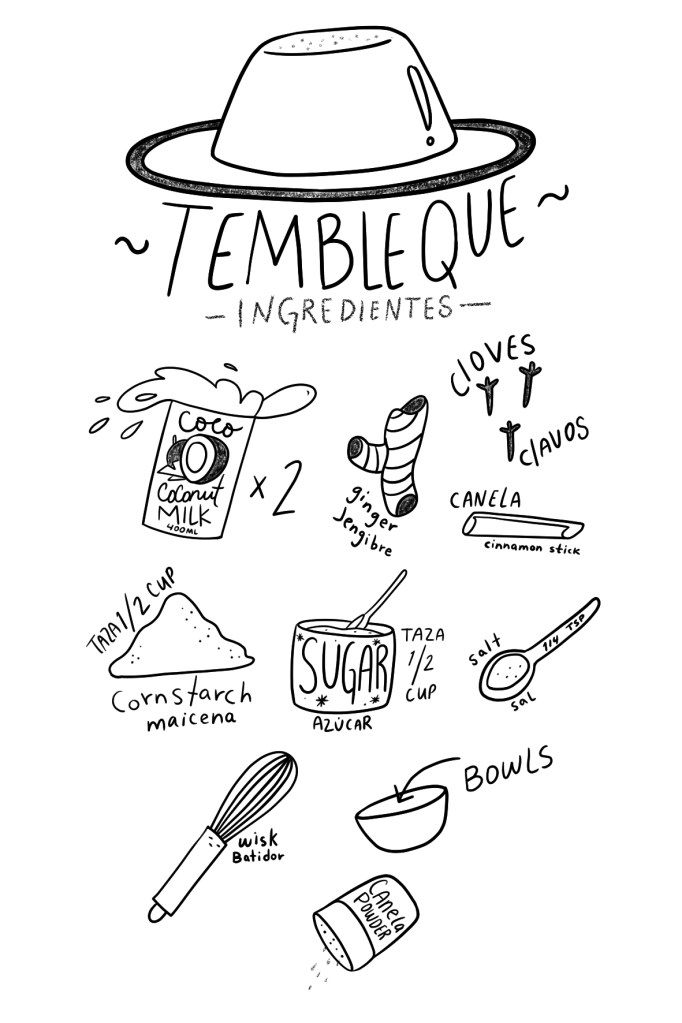 ~TEMBLEQUE~
-INGREDIENTES-
COCO
Coconut
MILK
400ML
x2
ginger
Jengibre
CLOVES
CLAVOS
CANELA
cinnamon stick
TAZA 1/2 CUP
Cornstarch
maicena
SUGAR
AZÚCAR
TAZA
1/2
CUP
salt
1/4 TSP
sal
wisk
Batidor
BOWLS
CANela
POWDER